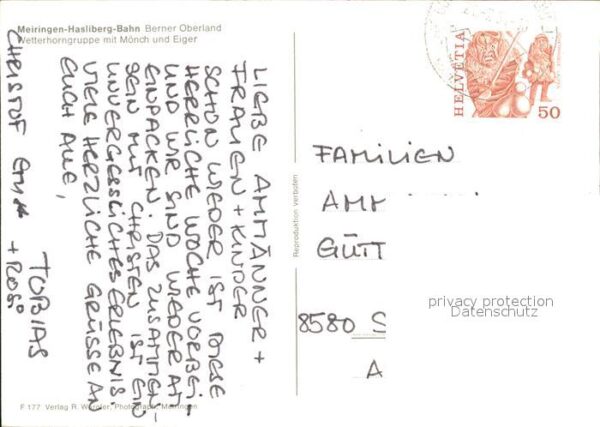 Meiringen-Hasliberg-Bahn Berner Oberland
Wetterhorngruppe mit Mönch und Eiger
LIEBE AMMÄNNER +
FRAUEN + KINDER
SCHON WIEDER IST DIESE
HERRLICHE WOCHE VORBEI -
UND WIR SIND WIEDER AM
EINPACKEN. DAS ZUSAMMEN-
SEIN MIT CHRISTEN IST EIN
UNVERGESSLICHES ERLEBNIS.
VIELE HERZLICHE GRÜSSE AN
EUCH ALLE,
TOBIAS
CHRISTOF + ROSI
F 177 Verlag R. Würgler, Photograph, Meiringen
Reproduktion verboten
HELVETIA
50
FAMILIEN
AMM
GÜTT
8580 S
A
privacy protection
Datenschutz